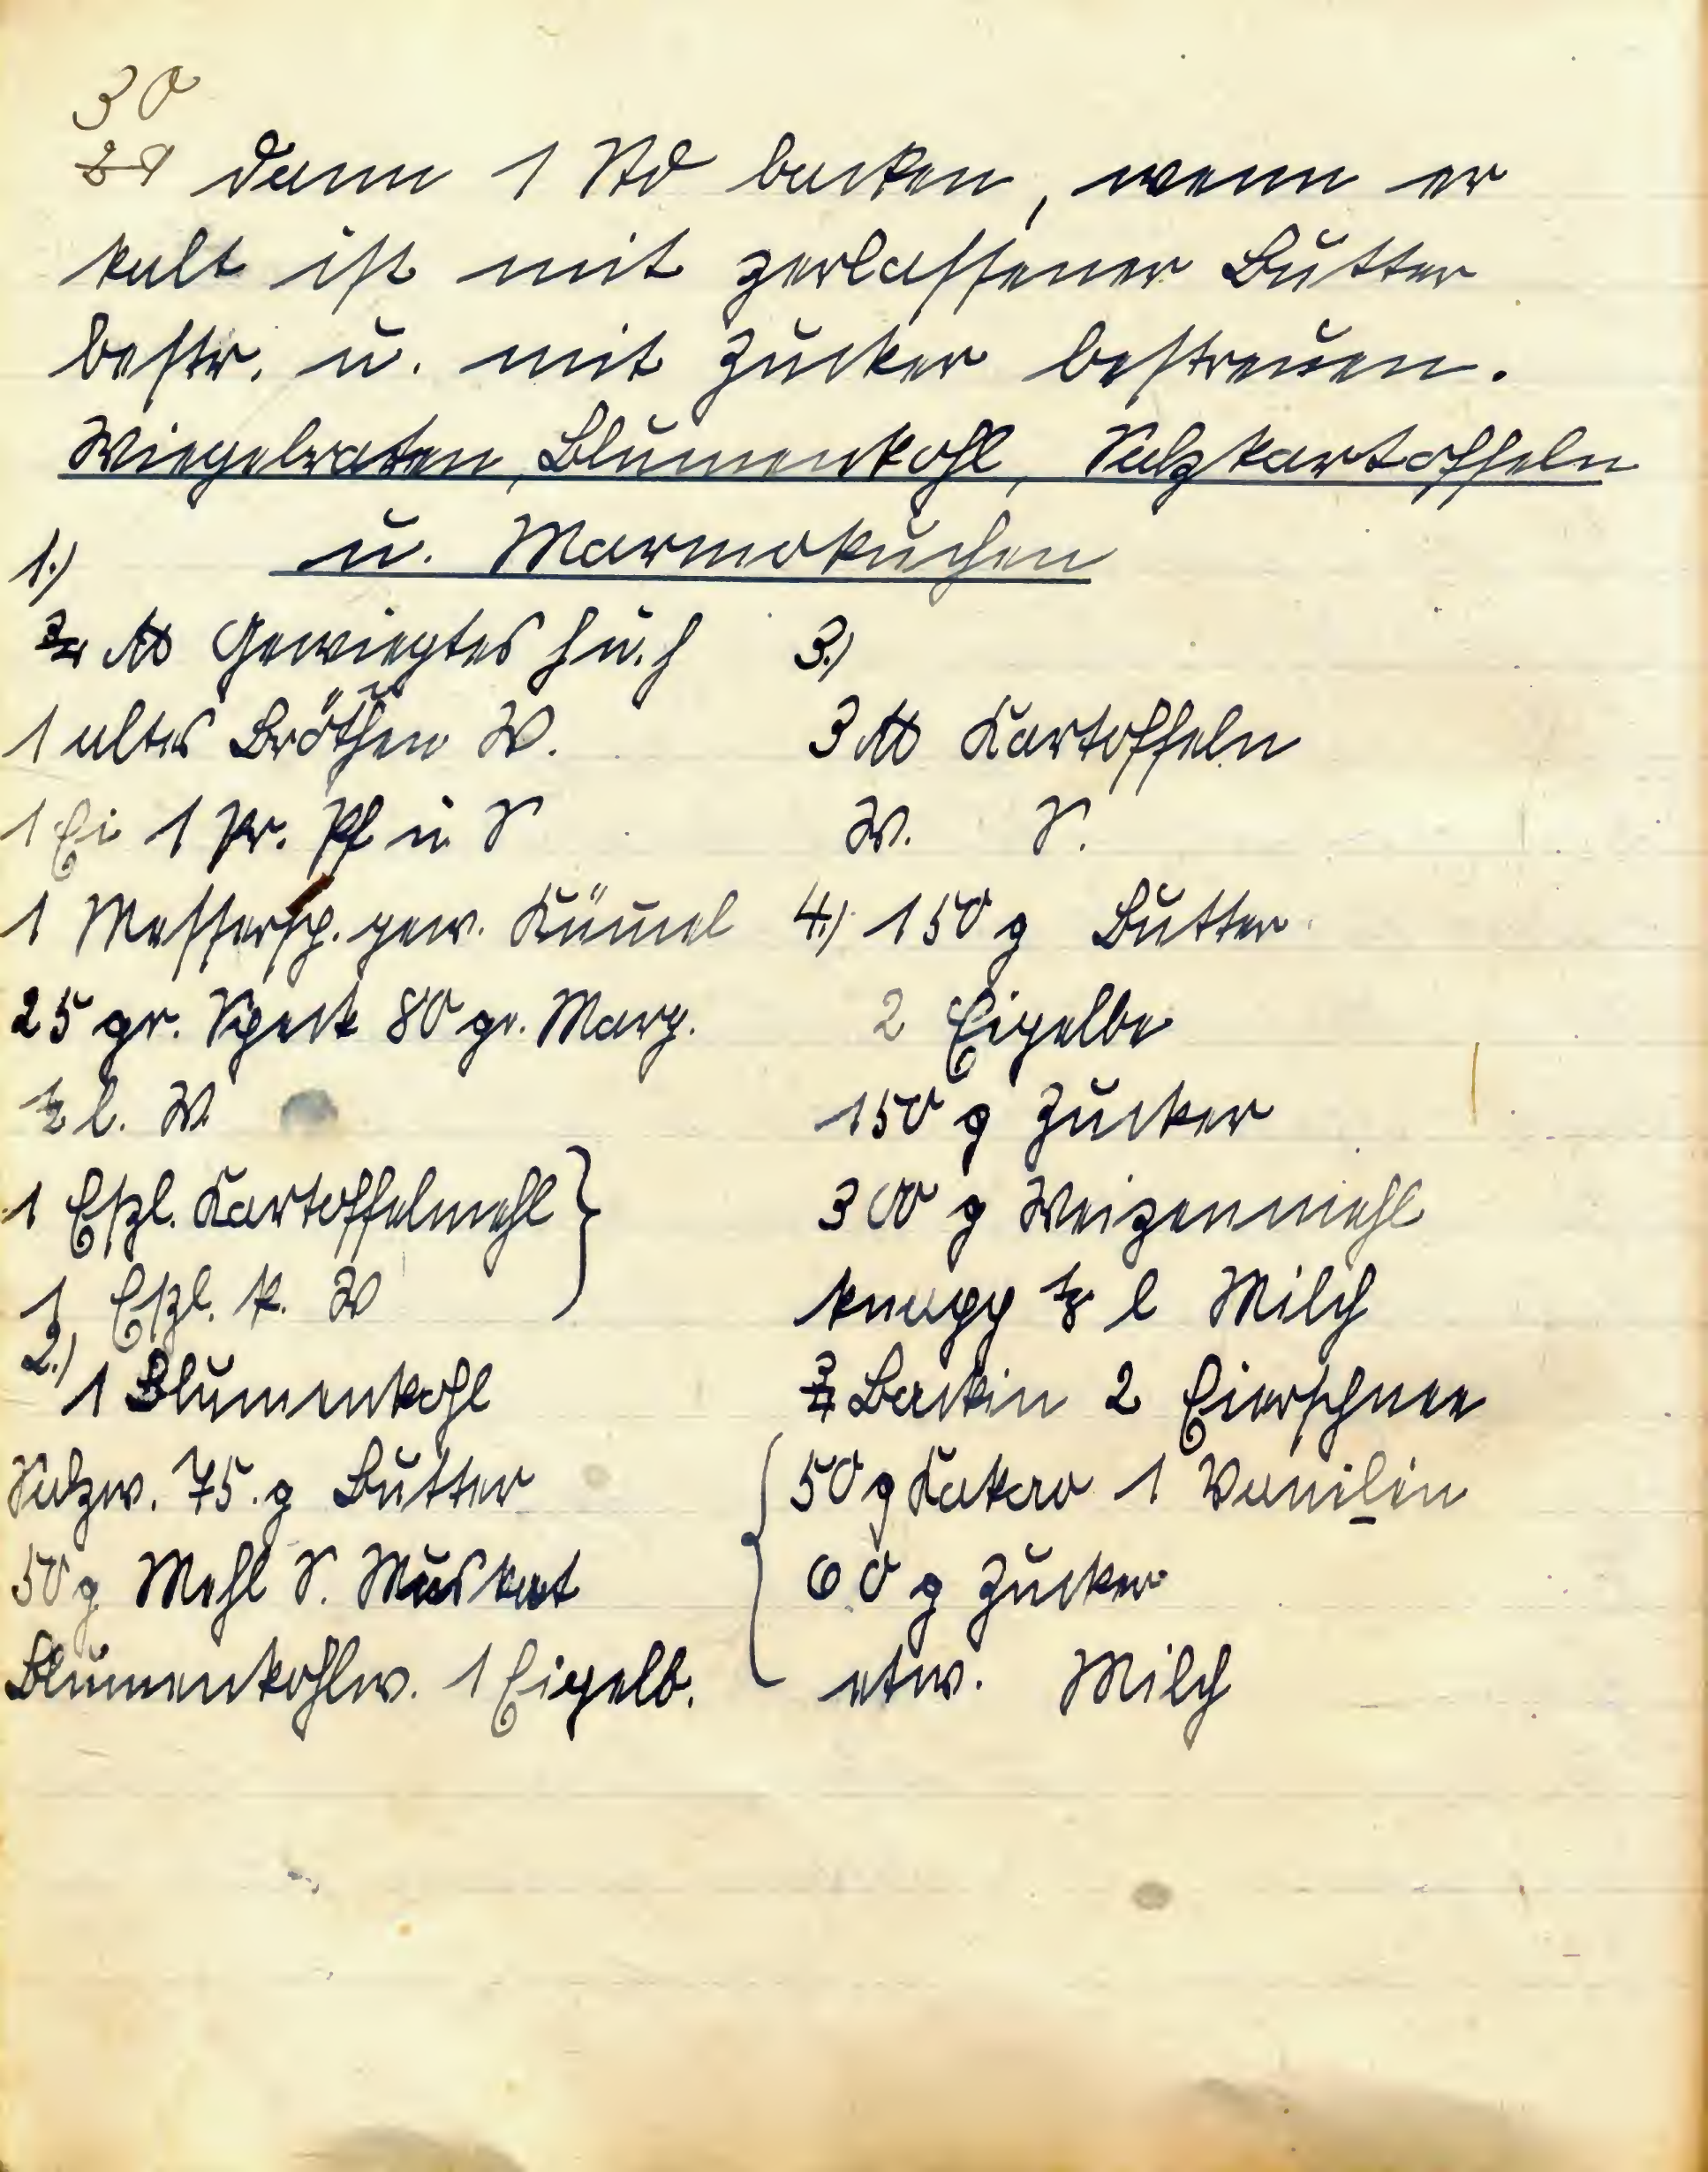 30
29 dann 1 Std backen, wenn er
kalt ist mit zerlassener Butter
bestr. u. mit Zucker bestreuen.
Wiegebraten, Blumenkohl, Salzkartoffeln
u. Marmokuchen
1.)
3/4 ℔ Gewiegtes h u. h
1 altes Brötchen W.
1 Ei 1 Pr. Pf u S
1 Messersp. gew. Küm̄el
25 gr. Speck 80 gr. Marg.
1/2 l. W
1 Eßl. Kartoffelmehl
1 Eßl. k. W
2.)
1 Blumenkohl
Salzw. 75 g Butter
50 g Mehl S. Muskat
Blumenkohlw. 1 Eigelb.
3.)
3 ℔ Kartoffeln
W. S.
4.) 150 g Butter
2 Eigelbe
150 g Zucker
300 g Weizenmehl
knapp 1/8 l Milch
3/4 Backin 2 Eierschnee
50 g Kakao 1 Vanilin
60 g Zucker
etw. Milch